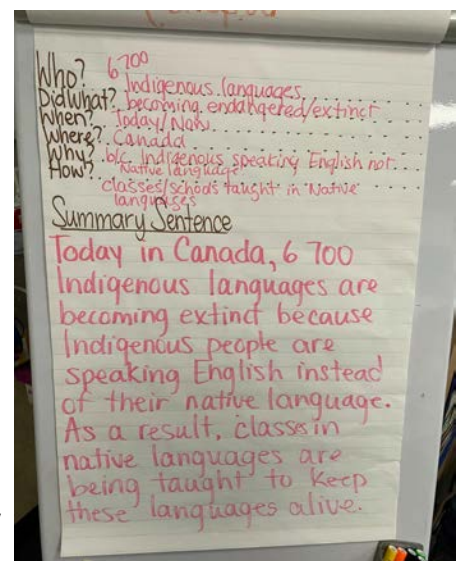 Who? 6 700
Indigenous languages
Did What? becoming endangered/extinct
When? Today/Now
Where? Canada
Why? b/c Indigenous speaking English not
Native language
How? classes/schools taught in "Native"
languages
Summary Sentence
Today in Canada, 6 700
Indigenous languages are
becoming extinct because
Indigenous people are
speaking English instead
of their native language.
As a result, classes in
native languages are
being taught to keep
these languages alive.